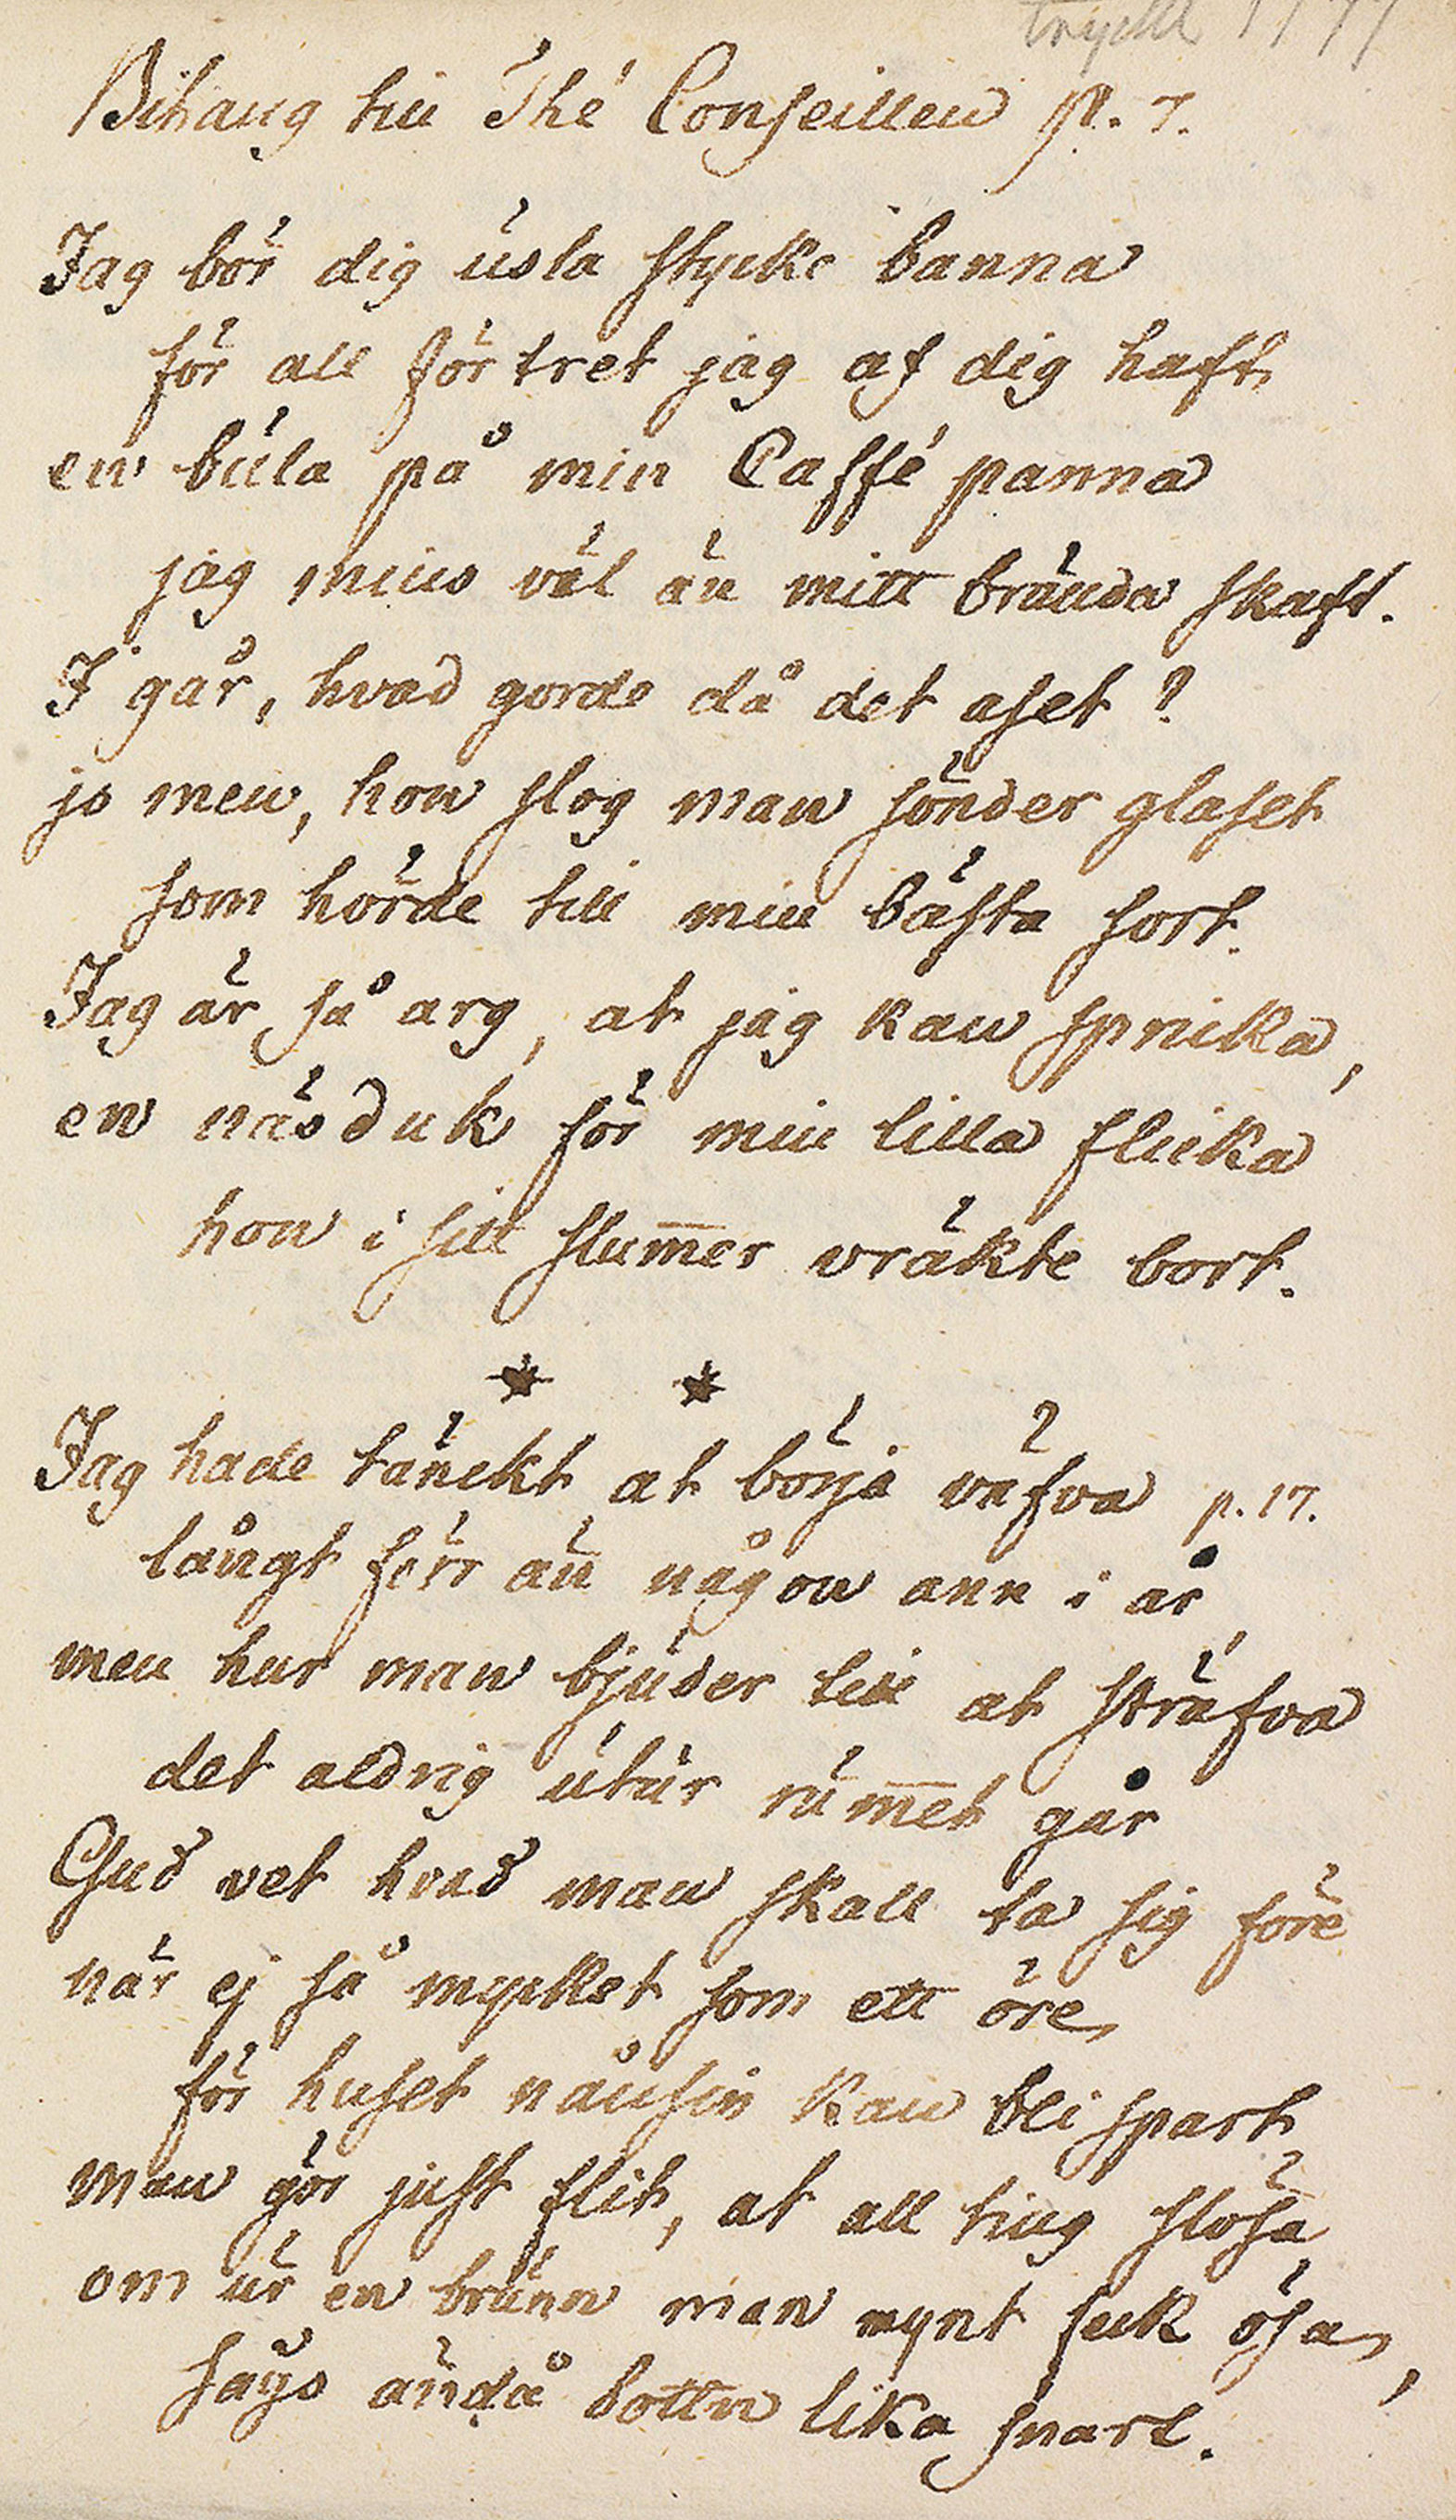 tryckt 1777
Bihang till Thé Conseillen p. 7.
Jag bör dig usla stycke banna
för all förtret jag af dig haft
en bula på min Caffé panna
jag mins väl än mitt brända skaft.
I går, hvad gorde då det aset?
jo men, hon slog man sönder glaset
som hörde till min bästa sort.
Jag är så arg, at jag kan spricka,
en näsduk för min lilla flicka
hon i sitt slum̅er vräkte bort.
* *
Jag hade tänckt at börja väfva p. 17.
långt förr än någon ann i år
men hur man bjuder till at sträfva
det aldrig utur rum̅et går
Gud vet hvad man skall ta sig före
när ej så mycket som ett öre
för huset nånsin kan bli spart
man gör just flit, at all ting slösa
om ur en brunn man mynt feck ösa,
såys ändå bottn lika snart.